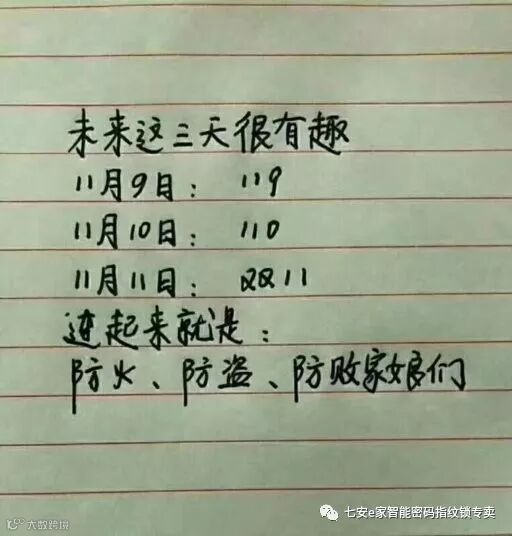 未来这三天很有趣
11月9日： 119
11月10日： 110
11月11日： 双双11
连起来就是：
防火、防盗、防败家娘们
七安e家智能密码指纹锁专卖
大数跨境